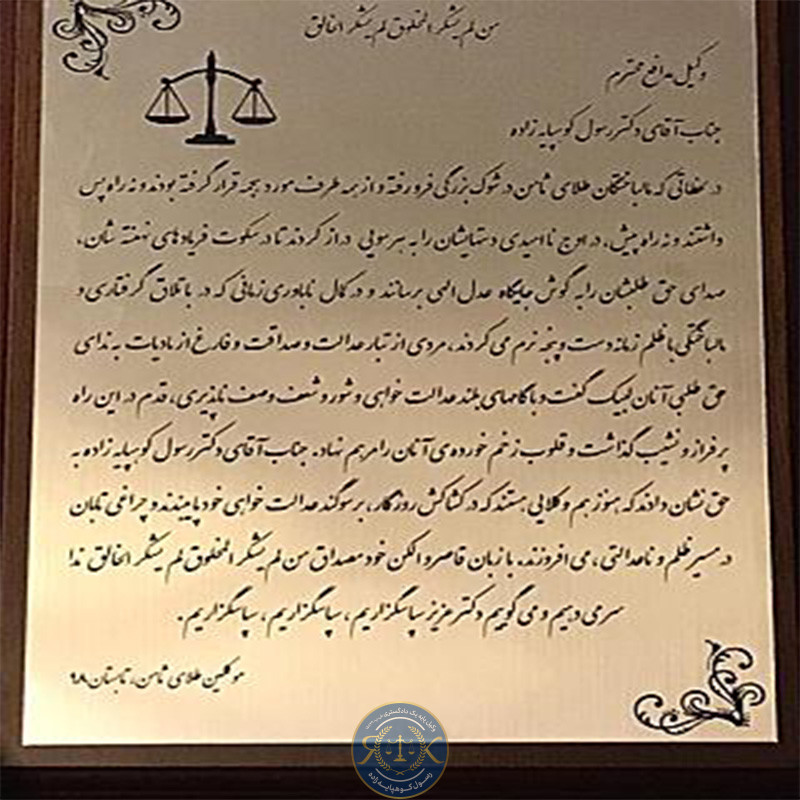 من لم یشکر المخلوق لم یشکر الخالق
وکیل مدافع محترم
جناب آقای دکتر رسول کوهپایه زاده
در لحظاتی که مالباختگان طلای ثامن در شوک بزرگی فرو رفته و از همه طرف مورد هجمه قرار گرفته بودند و نه راه پس
داشتند و نه راه پیش، در اوج ناامیدی دستهایشان را به هر سویی دراز کردند تا در سکوت فریادهای نهفته شان،
صدای حق طلبشان را به گوش جایگاه عدل الهی برسانند و در کمال ناباوری زمانی که در باتلاق گرفتاری و
مالباختگی با ظلم زمانه دست و پنجه نرم می کردند، مردی از تبار عدالت و صداقت و فارغ از مادیات به ندای
حق طلبی آنان لبیک گفت و با گامهای بلند عدالت خواهی و شور و شعف وصف ناپذیری، قدم در این راه
پر فراز و نشیب گذاشت و قلوب زخم خورده ی آنان را مرهم نهاد. جناب آقای دکتر رسول کوهپایه زاده به
حق نشان دادند که هنوز هم وکلایی هستند که در کشاکش روزگار، بر سوگند عدالت خواهی خود پایبندند و چراغی تابان
در مسیر ظلم و ناعدالتی، می افروزند. با زبان قاصر و الکن خود مصداق من لم یشکر المخلوق لم یشکر الخالق ندا
سر می دهیم و می گوییم دکتر عزیز سپاسگزاریم، سپاسگزاریم، سپاسگزاریم.
موکلین طلای ثامن، تابستان ۹۸
وکیل پایه یک دادگستری
RK
رسول کوهپایه زاده